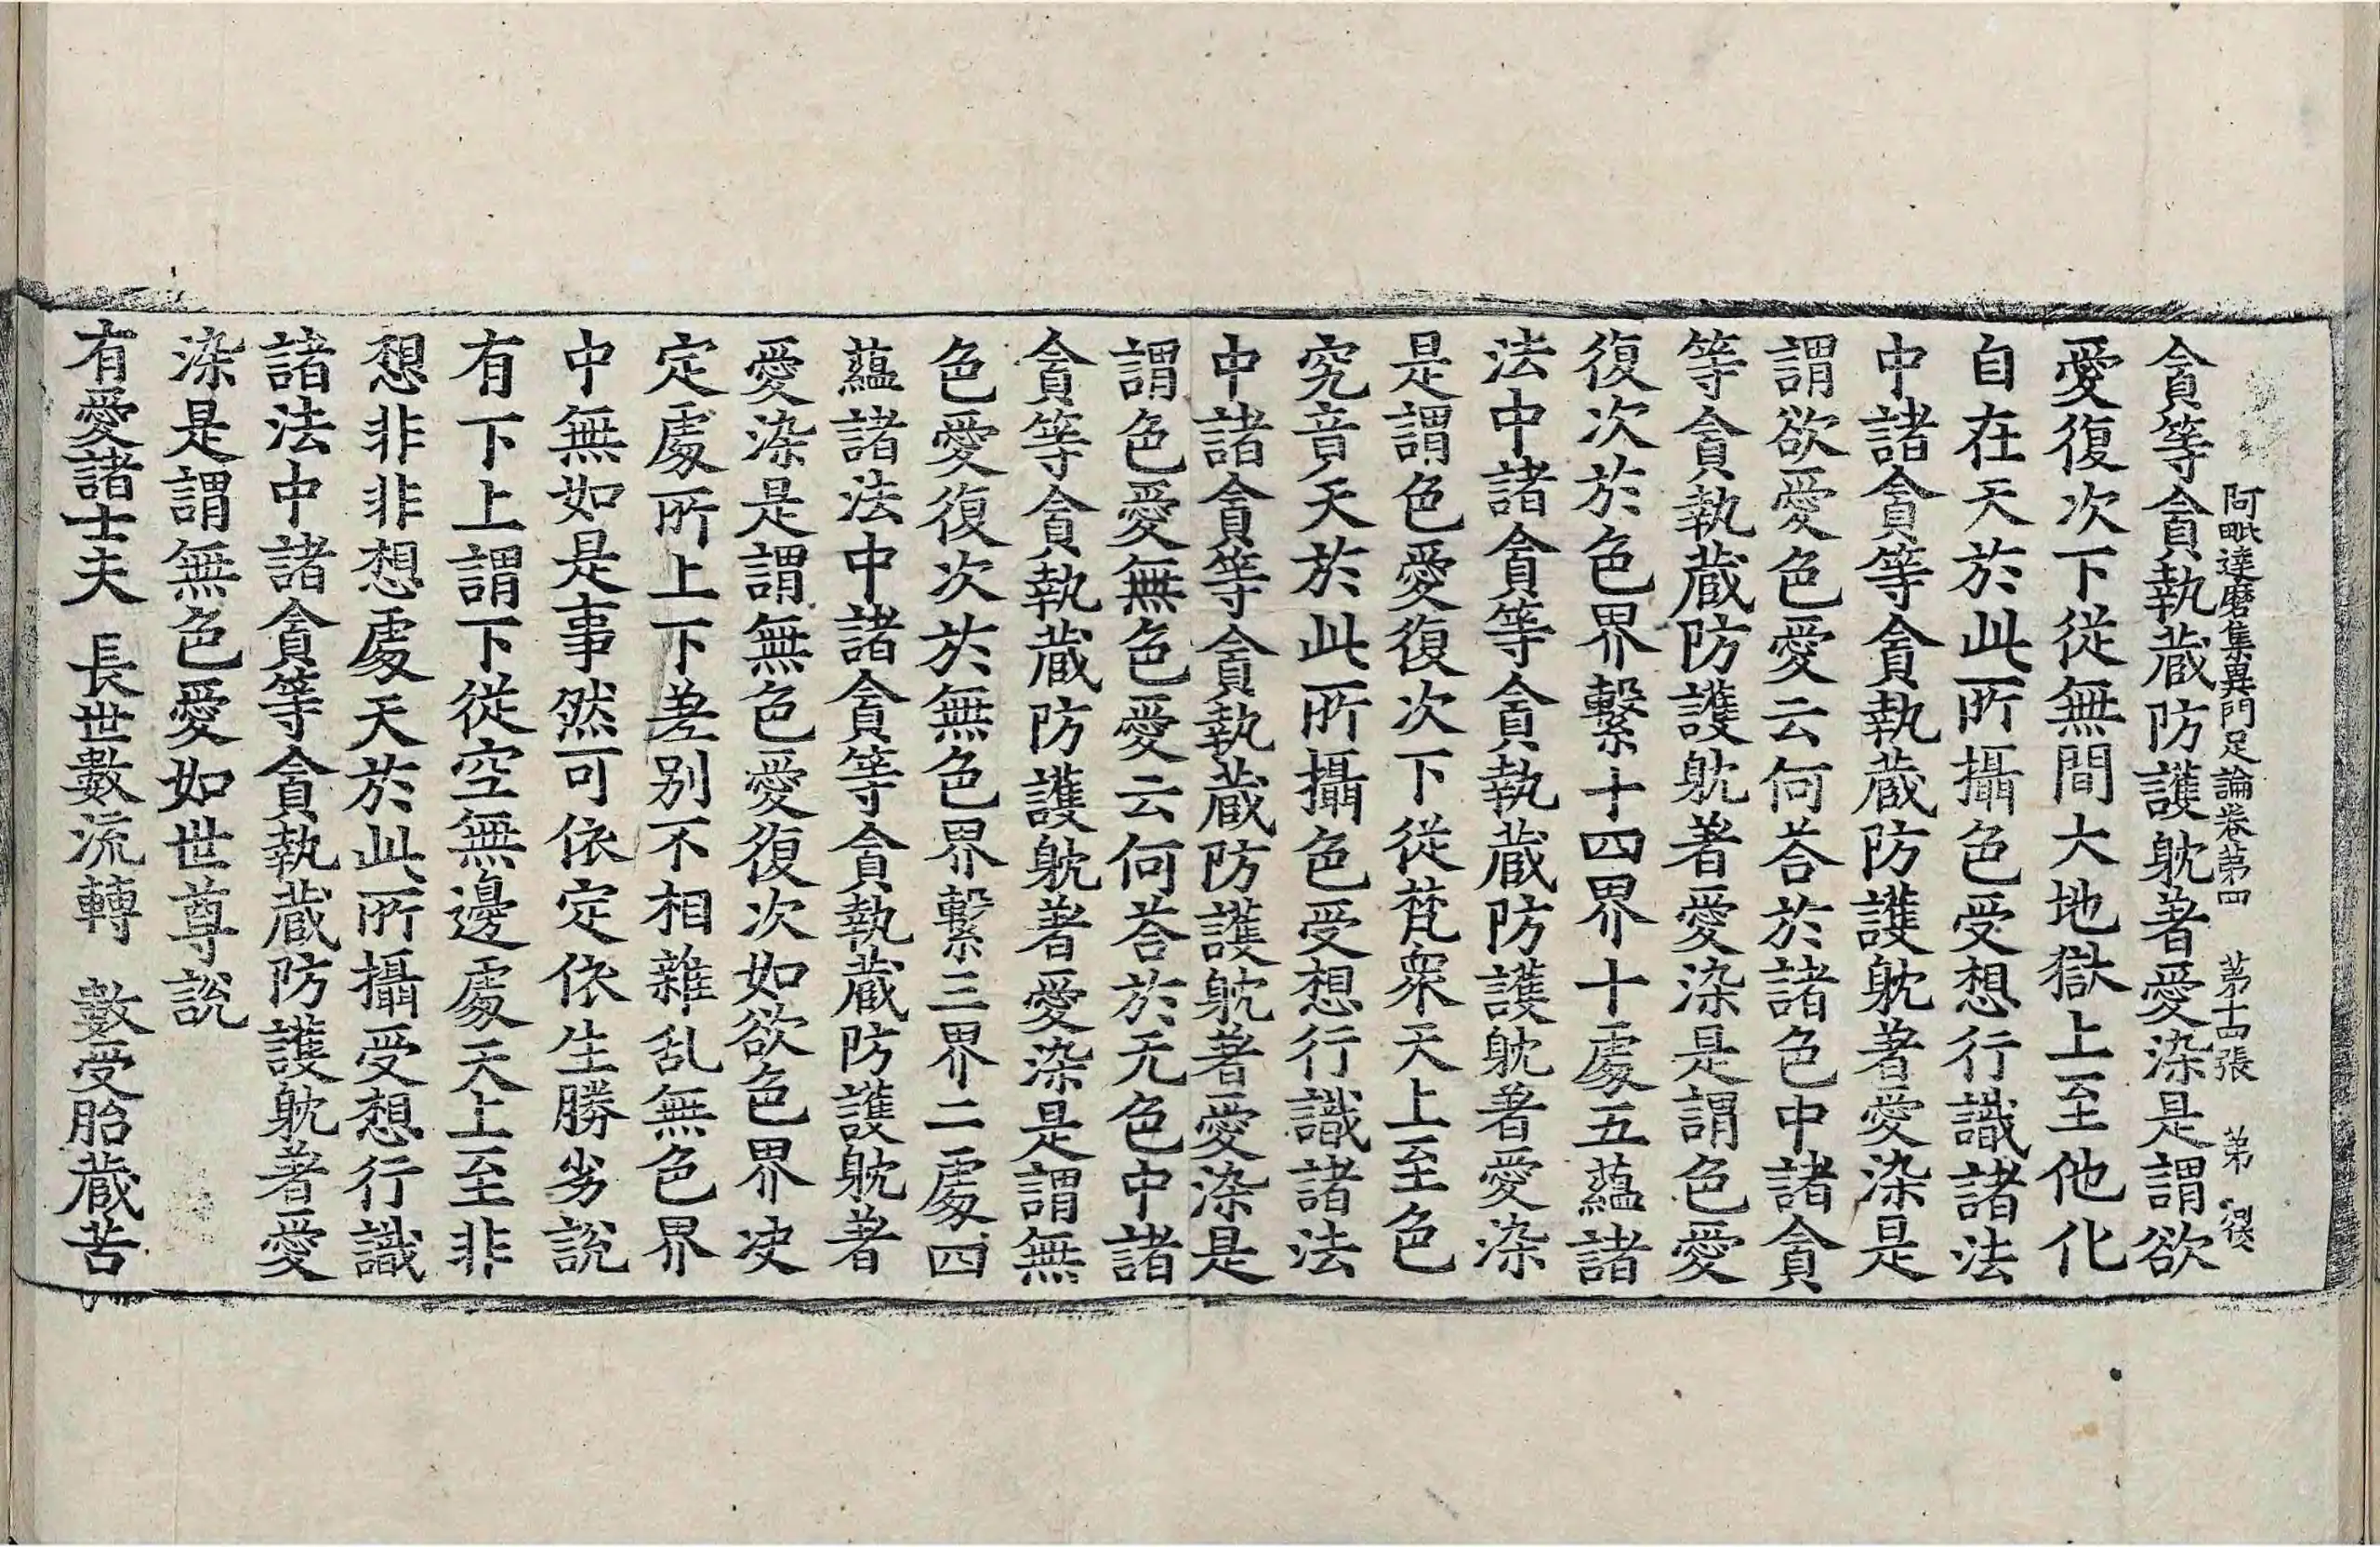 阿毗達磨集異門足論卷第四 第十四張 弟
貪等貪執藏防護躭著愛染是謂欲
愛復次下從無間大地獄上至他化
自在天於此所攝色受想行識諸法
中諸貪等貪執藏防護躭著愛染是
謂欲愛色愛云何荅於諸色中諸貪
等貪執藏防護躭著愛染是謂色愛
復次於色界繫十四界十處五蘊諸
法中諸貪等貪執藏防護躭著愛染
是謂色愛復次下從梵衆天上至色
究竟天於此所攝色受想行識諸法
中諸貪等貪執藏防護躭著愛染是
謂色愛無色愛云何荅於无色中諸
貪等貪執藏防護躭著愛染是謂無
色愛復次於無色界繫三界二處四
蘊諸法中諸貪等貪執藏防護躭著
愛染是謂無色愛復次如欲色界决
定處所上下差别不相雜乱無色界
中無如是事然可依定依生勝劣說
有下上謂下從空無邊處天上至非
想非非想處天於此所攝受想行識
諸法中諸貪等貪執藏防護躭著愛
染是謂無色愛如世尊說
有愛諸士夫 長世數流轉 數受胎藏苦